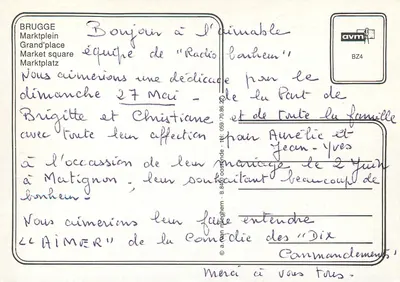 BRUGGE
Marktplein
Grand'place
Market square
Marktplatz
avm
BZ4
Bonjour à l'aimable
équipe de "Radio bonheur"
Nous aimerions une dédicace pour le
dimanche 27 Mai - de la Part de
Brigitte et Christiane et de toute la famille
avec toute leur affection pour Aurélie et
Jean-Yves
à l'occassion de leur mariage le 2 Juin
à Matignon, leur souhaitant beaucoup de
bonheur -
Nous aimerions leur faire entendre
"AIMER" de la Comédie des "Dix
Commandements"
Merci à vous tous.